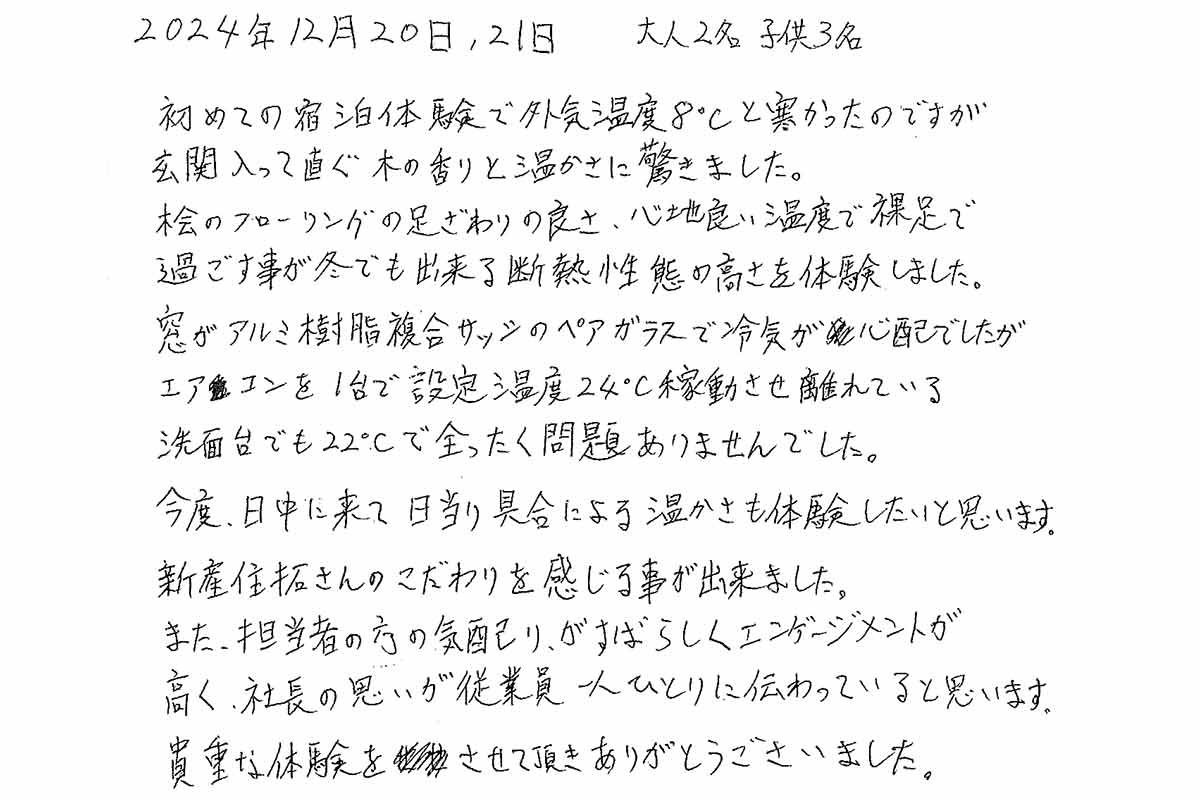 2024年12月20日,21日　大人2名 子供3名
初めての宿泊体験で外気温度8℃と寒かったのですが
玄関入って直ぐ木の香りと温かさに驚きました。
桧のフローリングの足ざわりの良さ、心地良い温度で裸足で
過ごす事が冬でも出来る断熱性態の高さを体験しました。
窓がアルミ樹脂複合サッシのペアガラスで冷気が心配でしたが
エアコンを1台で設定温度24℃稼動させ離れている
洗面台でも22℃で全ったく問題ありませんでした。
今度、日中に来て日当り具合による温かさも体験したいと思います。
新産住拓さんのこだわりを感じる事が出来ました。
また、担当者の方の気配り、がすばらしくエンゲージメントが
高く、社長の思いが従業員一人ひとりに伝わっていると思います。
貴重な体験をさせて頂きありがとうございました。